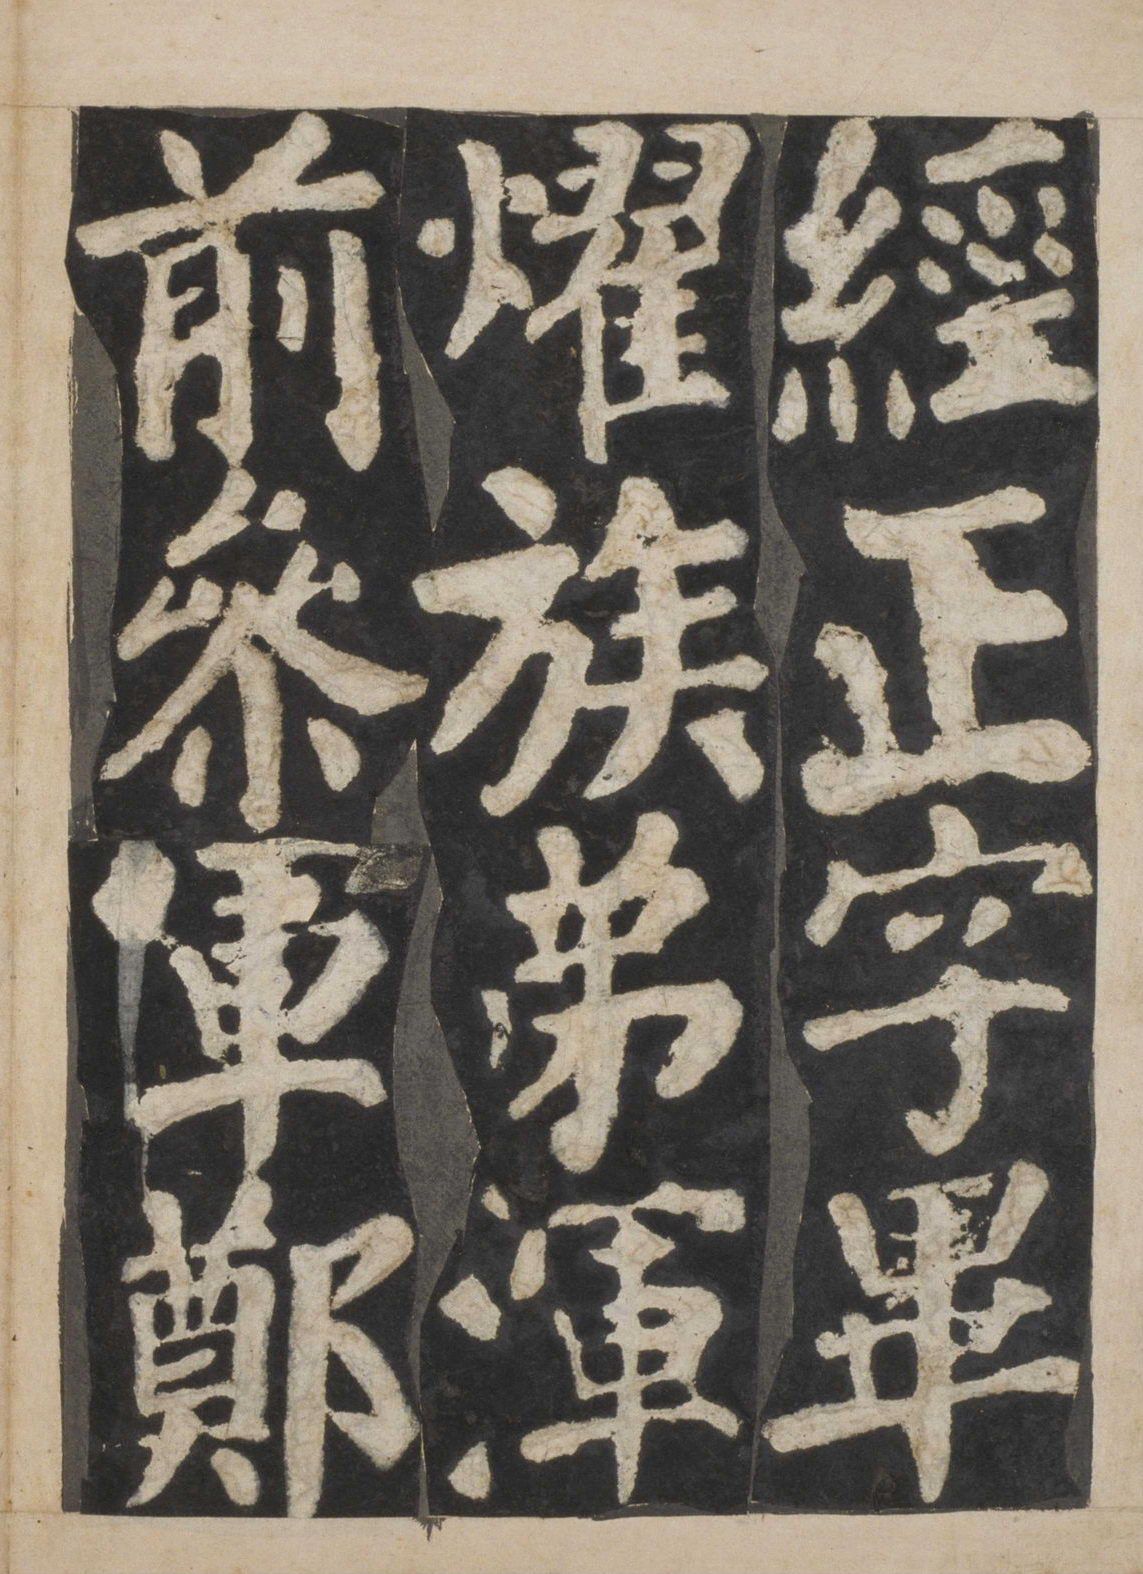 經正字畢
燿族弟渾
前參軍鄭